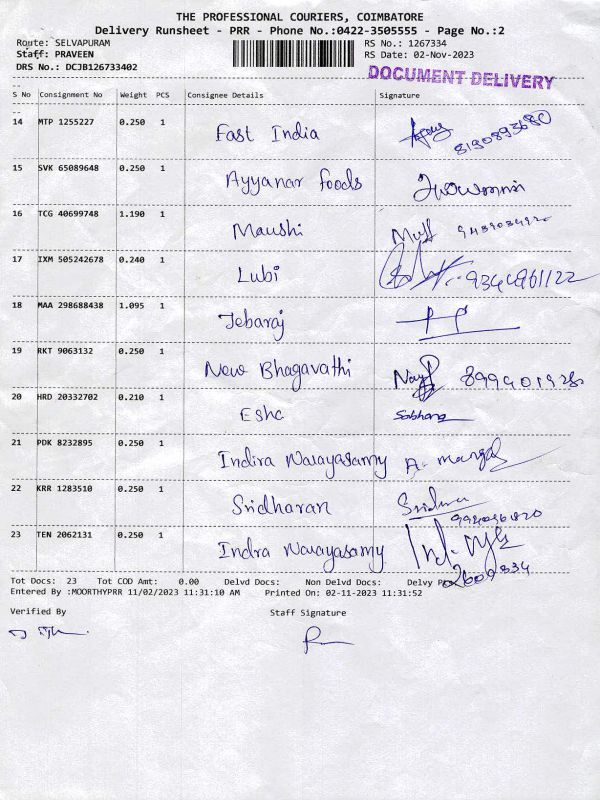 THE PROFESSIONAL COURIERS, COIMBATORE
Delivery Runsheet - PRR - Phone No.:0422-3505555 - Page No.:2
Route: SELVAPURAM RS No.: 1267334
Staff: PRAVEEN RS Date: 02-Nov-2023
DRS No.: DCJB126733402
DOCUMENT DELIVERY
S No Consignment No Weight PCS Consignee Details Signature
14 MTP 1255227 0.250 1 Fast India
8190893680
15 SVK 65089648 0.250 1 Ayyanar foods
16 TCG 40699748 1.190 1 Maushi
17 IXM 505242678 0.240 1 Lubi
18 MAA 298688438 1.095 1 Jebaraj
19 RKT 9063132 0.250 1 New Bhagavathi
20 HRD 20332702 0.210 1 Esha
21 PDK 8232895 0.250 1 Indira Narayasamy
22 KRR 1283510 0.250 1 Sridharan
23 TEN 2062131 0.250 1 Indra Narayasamy
Tot Docs: 23 Tot COD Amt: 0.00 Delvd Docs: Non Delvd Docs: Delvy
Entered By :MOORTHYPRR 11/02/2023 11:31:10 AM Printed On: 02-11-2023 11:31:52
Verified By Staff Signature